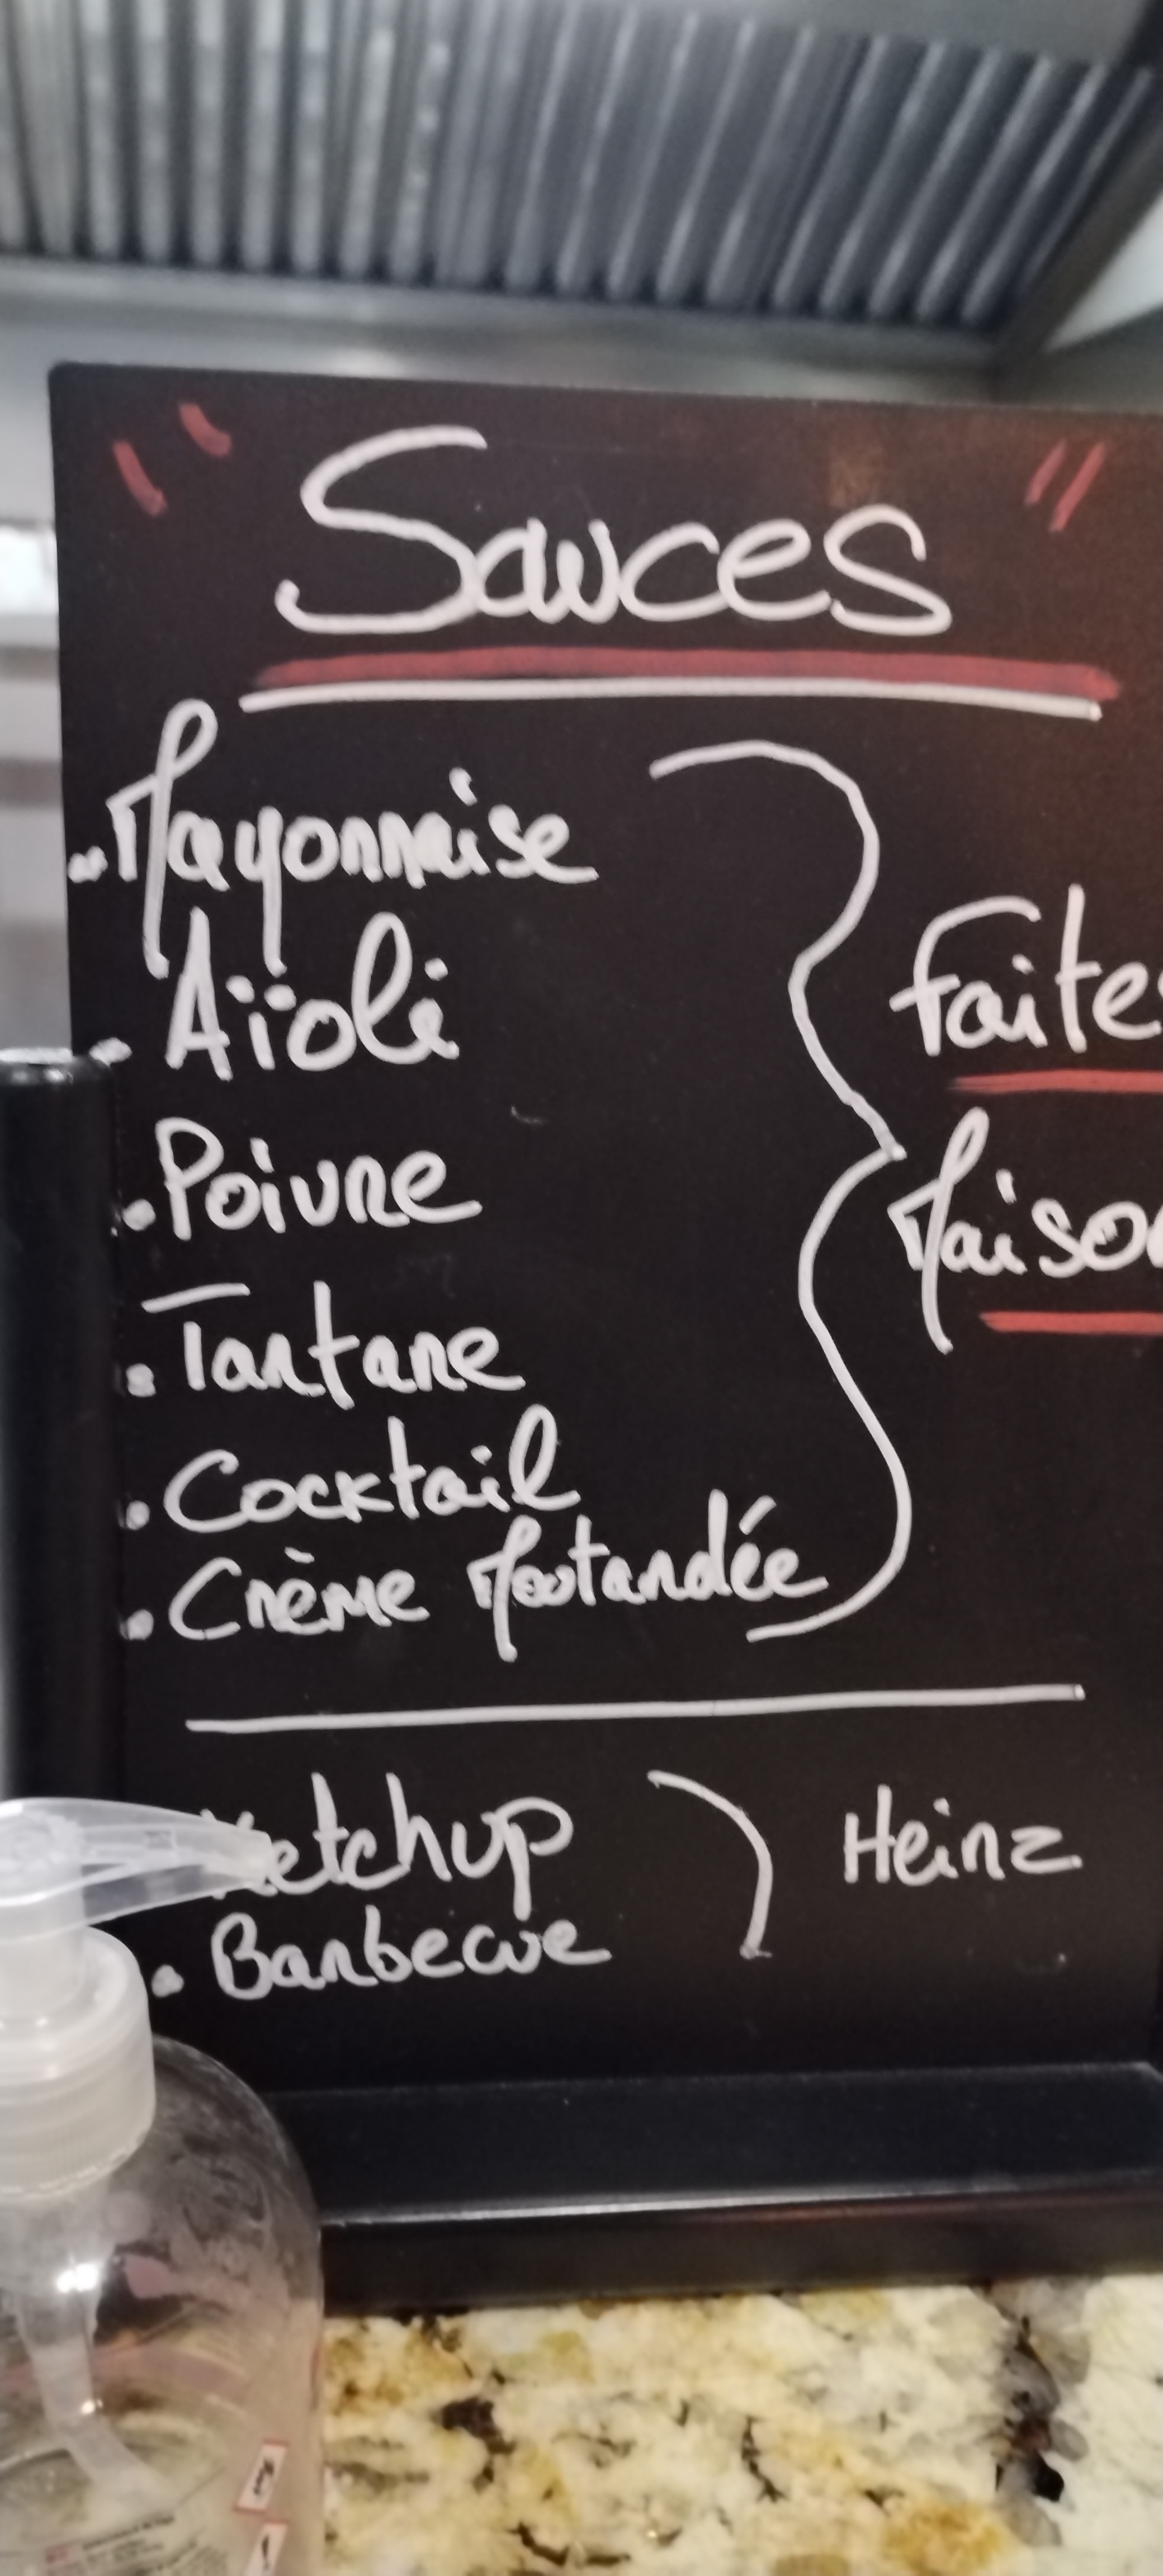 " Sauces "
. Mayonnaise
. Aïoli
. Poivre
. Tartare
. Cocktail
. Crème Moutardée
Faites
Maison
Ketchup
. Barbecue
Heinz